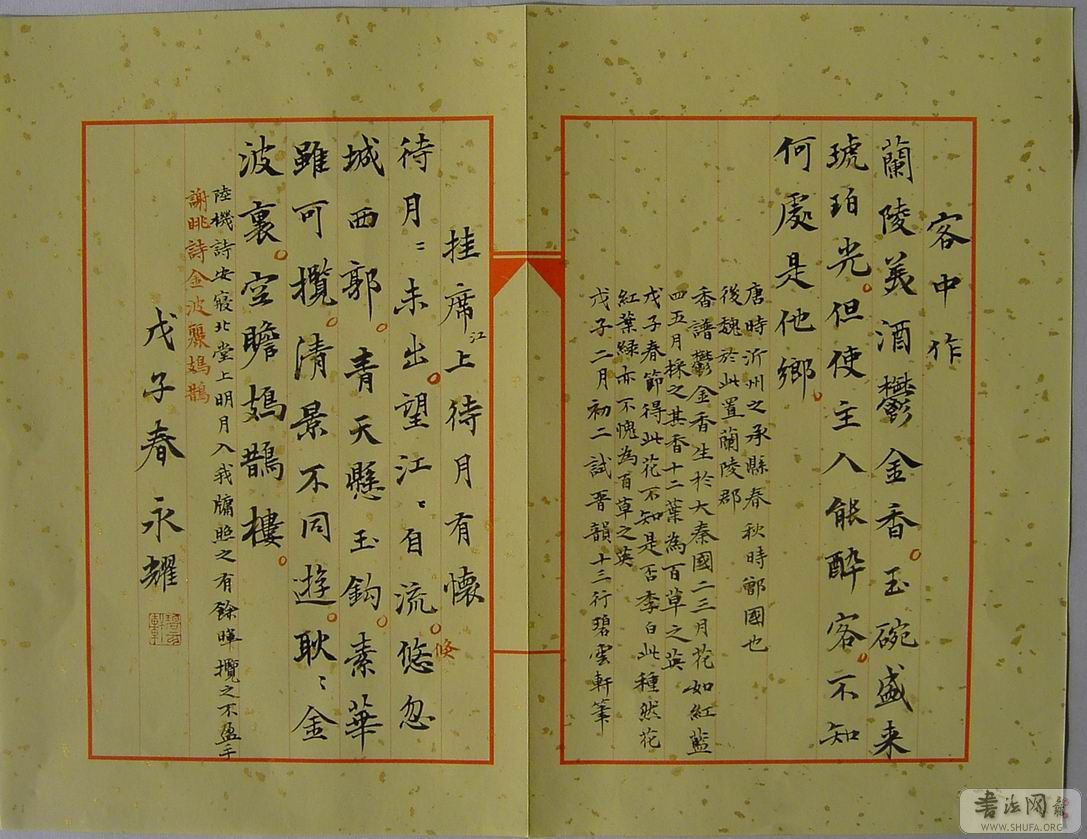 客中作
蘭陵美酒鬱金香。玉碗盛来
琥珀光。但使主人能醉客。不知
何處是他鄉。
唐時沂州之承縣春秋時鄫國也
後魏於此置蘭陵郡
香譜鬱金香生於大秦國二三月花如紅藍
四五月採之其香十二葉為百草之英
戊子春節得此花不知是否李白此種然花
紅葉綠亦不愧為百草之英
戊子二月初二試晉韻十三行碧雲軒筆
挂席江上待月有懷
待月:未出。望江:自流。悠忽
倏
城西郭。青天懸玉鈎。素華
雖可攬。清景不同遊。耿:金
波裏。空瞻鳷鵲樓。
陸機詩安寢北堂上明月入我牖照之有餘暉攬之不盈手
謝眺詩金波麗鳷鵲
戊子春永耀
書法网
WWW.SHUFA.ORG